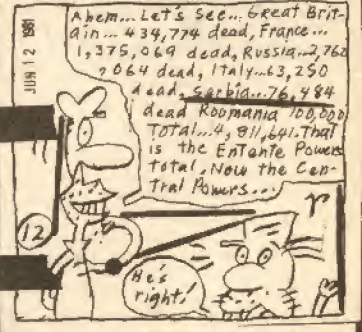 JUN 12 1981
Ahem... Let's See... Great Brit-
ain... 434,774 dead, France...
1,375,069 dead, Russia...2,762
,064 dead, Italy...63,250
dead, Serbia...76,484
dead Roomania 100,000
Total...4,811,641. That
is the Entente Powers
total. Now the Cen-
tral Powers...
12
He's
right!